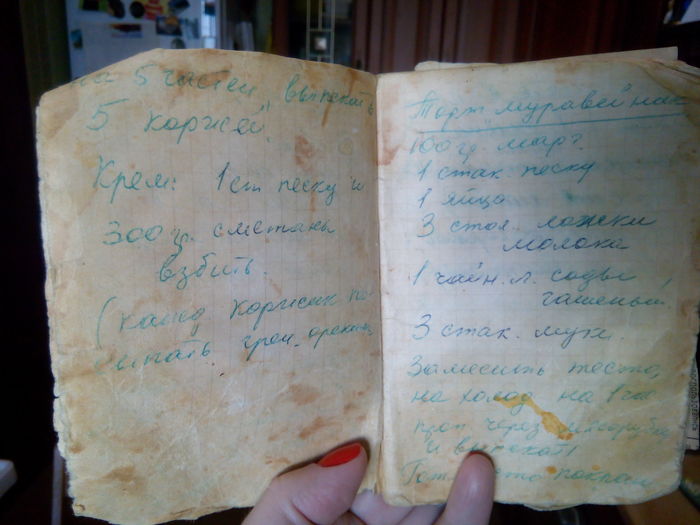 на 5 частей, выпекать
5 коржей.
Крем: 1 ст песку и
300 гр. сметаны
взбить.
(кажд коржик по-
сыпать грец. орехами
Торт "Муравейник"
100 гр. марг.
1 стак. песку
1 яйцо
3 стол. ложки
молока
1 чайн. л. соды
гашеный,
3 стак. муки.
Замесить тесто,
на холод на 1 час
проп через мясорубку
и выпекать